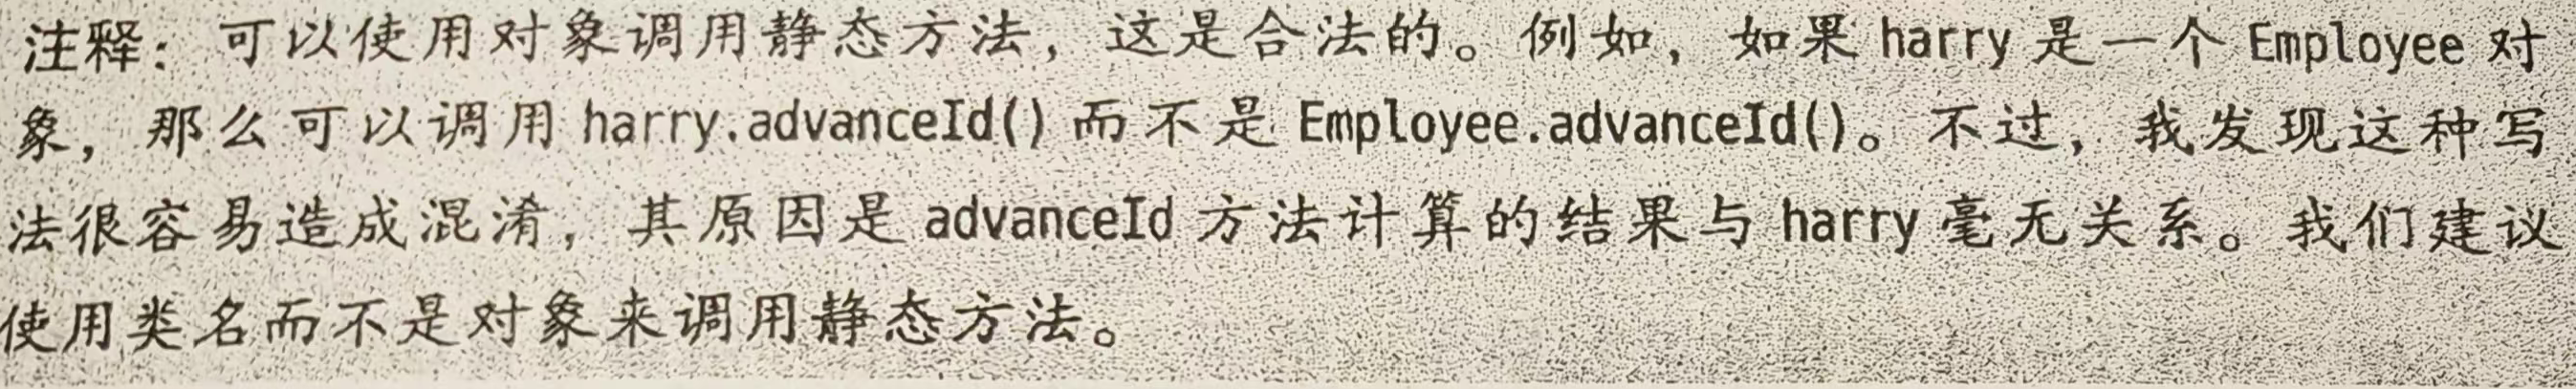 注释：可以使用对象调用静态方法，这是合法的。例如，如果 harry 是一个 Employee 对
象，那么可以调用 harry.advanceId() 而不是 Employee.advanceId()。不过，我发现这种写
法很容易造成混淆，其原因是 advanceId 方法计算的结果与 harry 毫无关系。我们建议
使用类名而不是对象来调用静态方法。